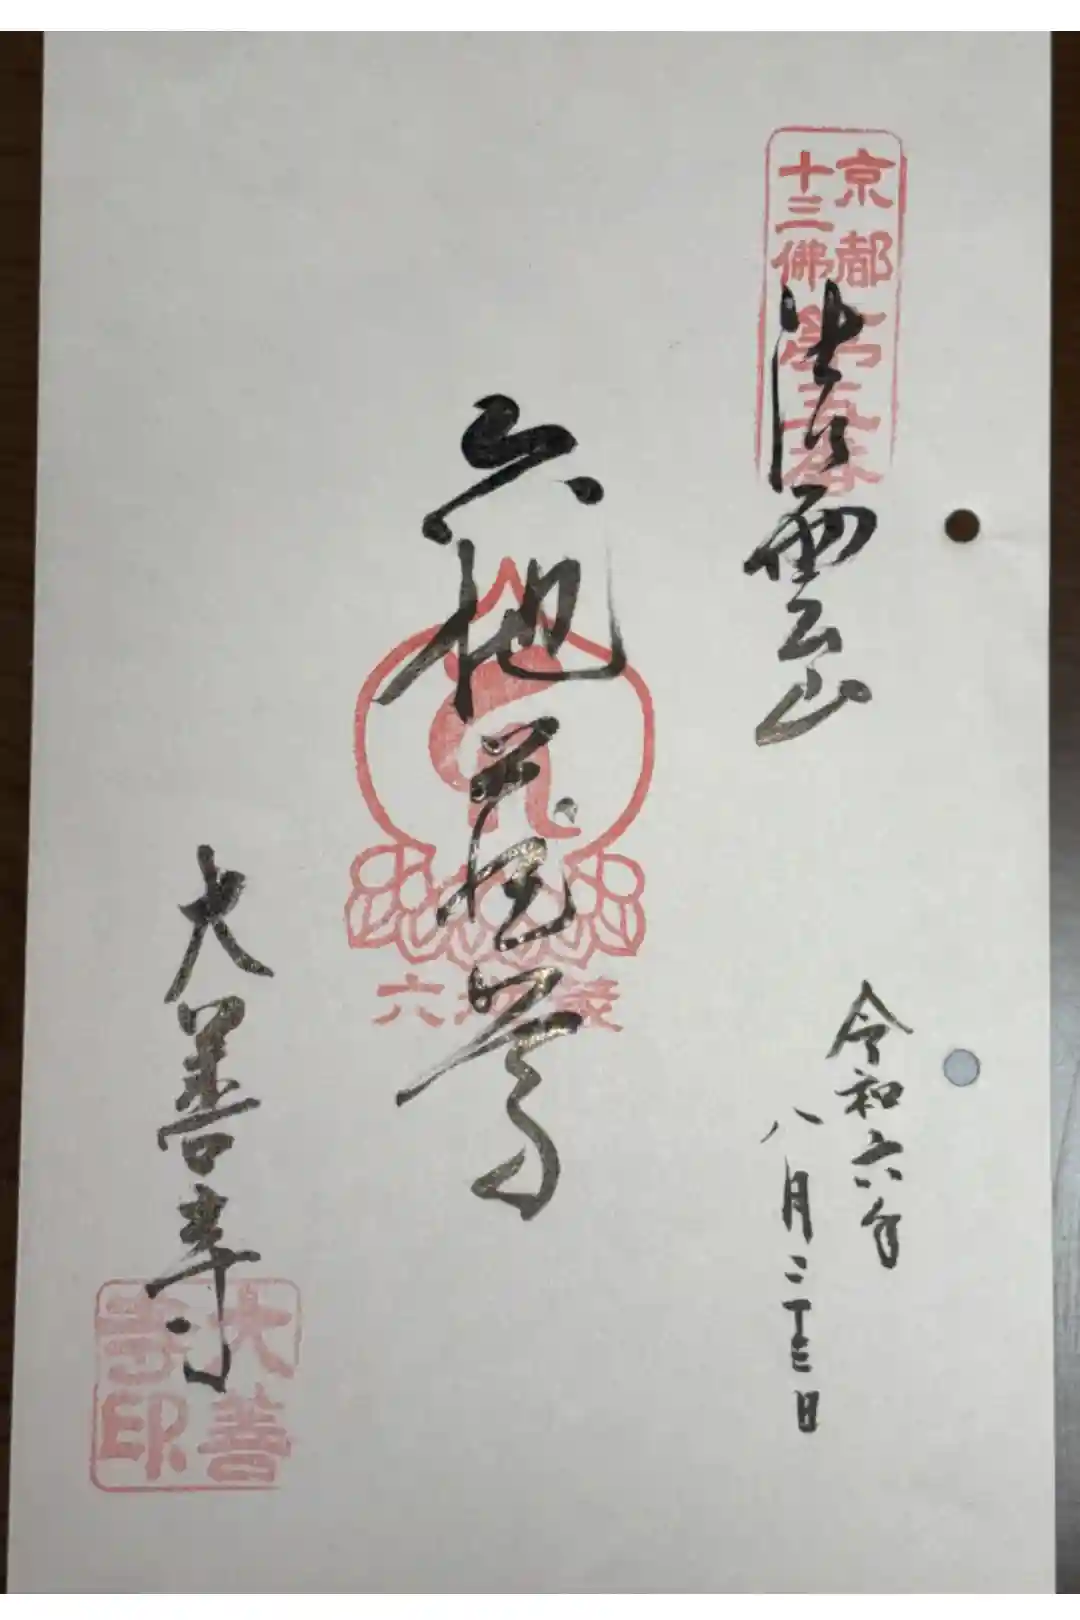 京都第五番
十三佛霊場
法雲山
令和六年
八月二十三日
六地蔵尊
六地蔵
大善寺
大善
寺印